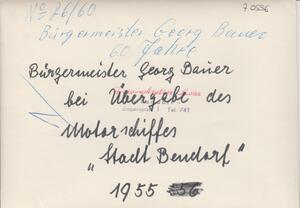 No 26/60
7.0556
Bürgermeister Georg Bauer
60 Jahre
Bürgermeister Georg Bauer
bei Übergabe des
Tel. 741
Motorschiffes
"Stadt Bendorf"
1955 56